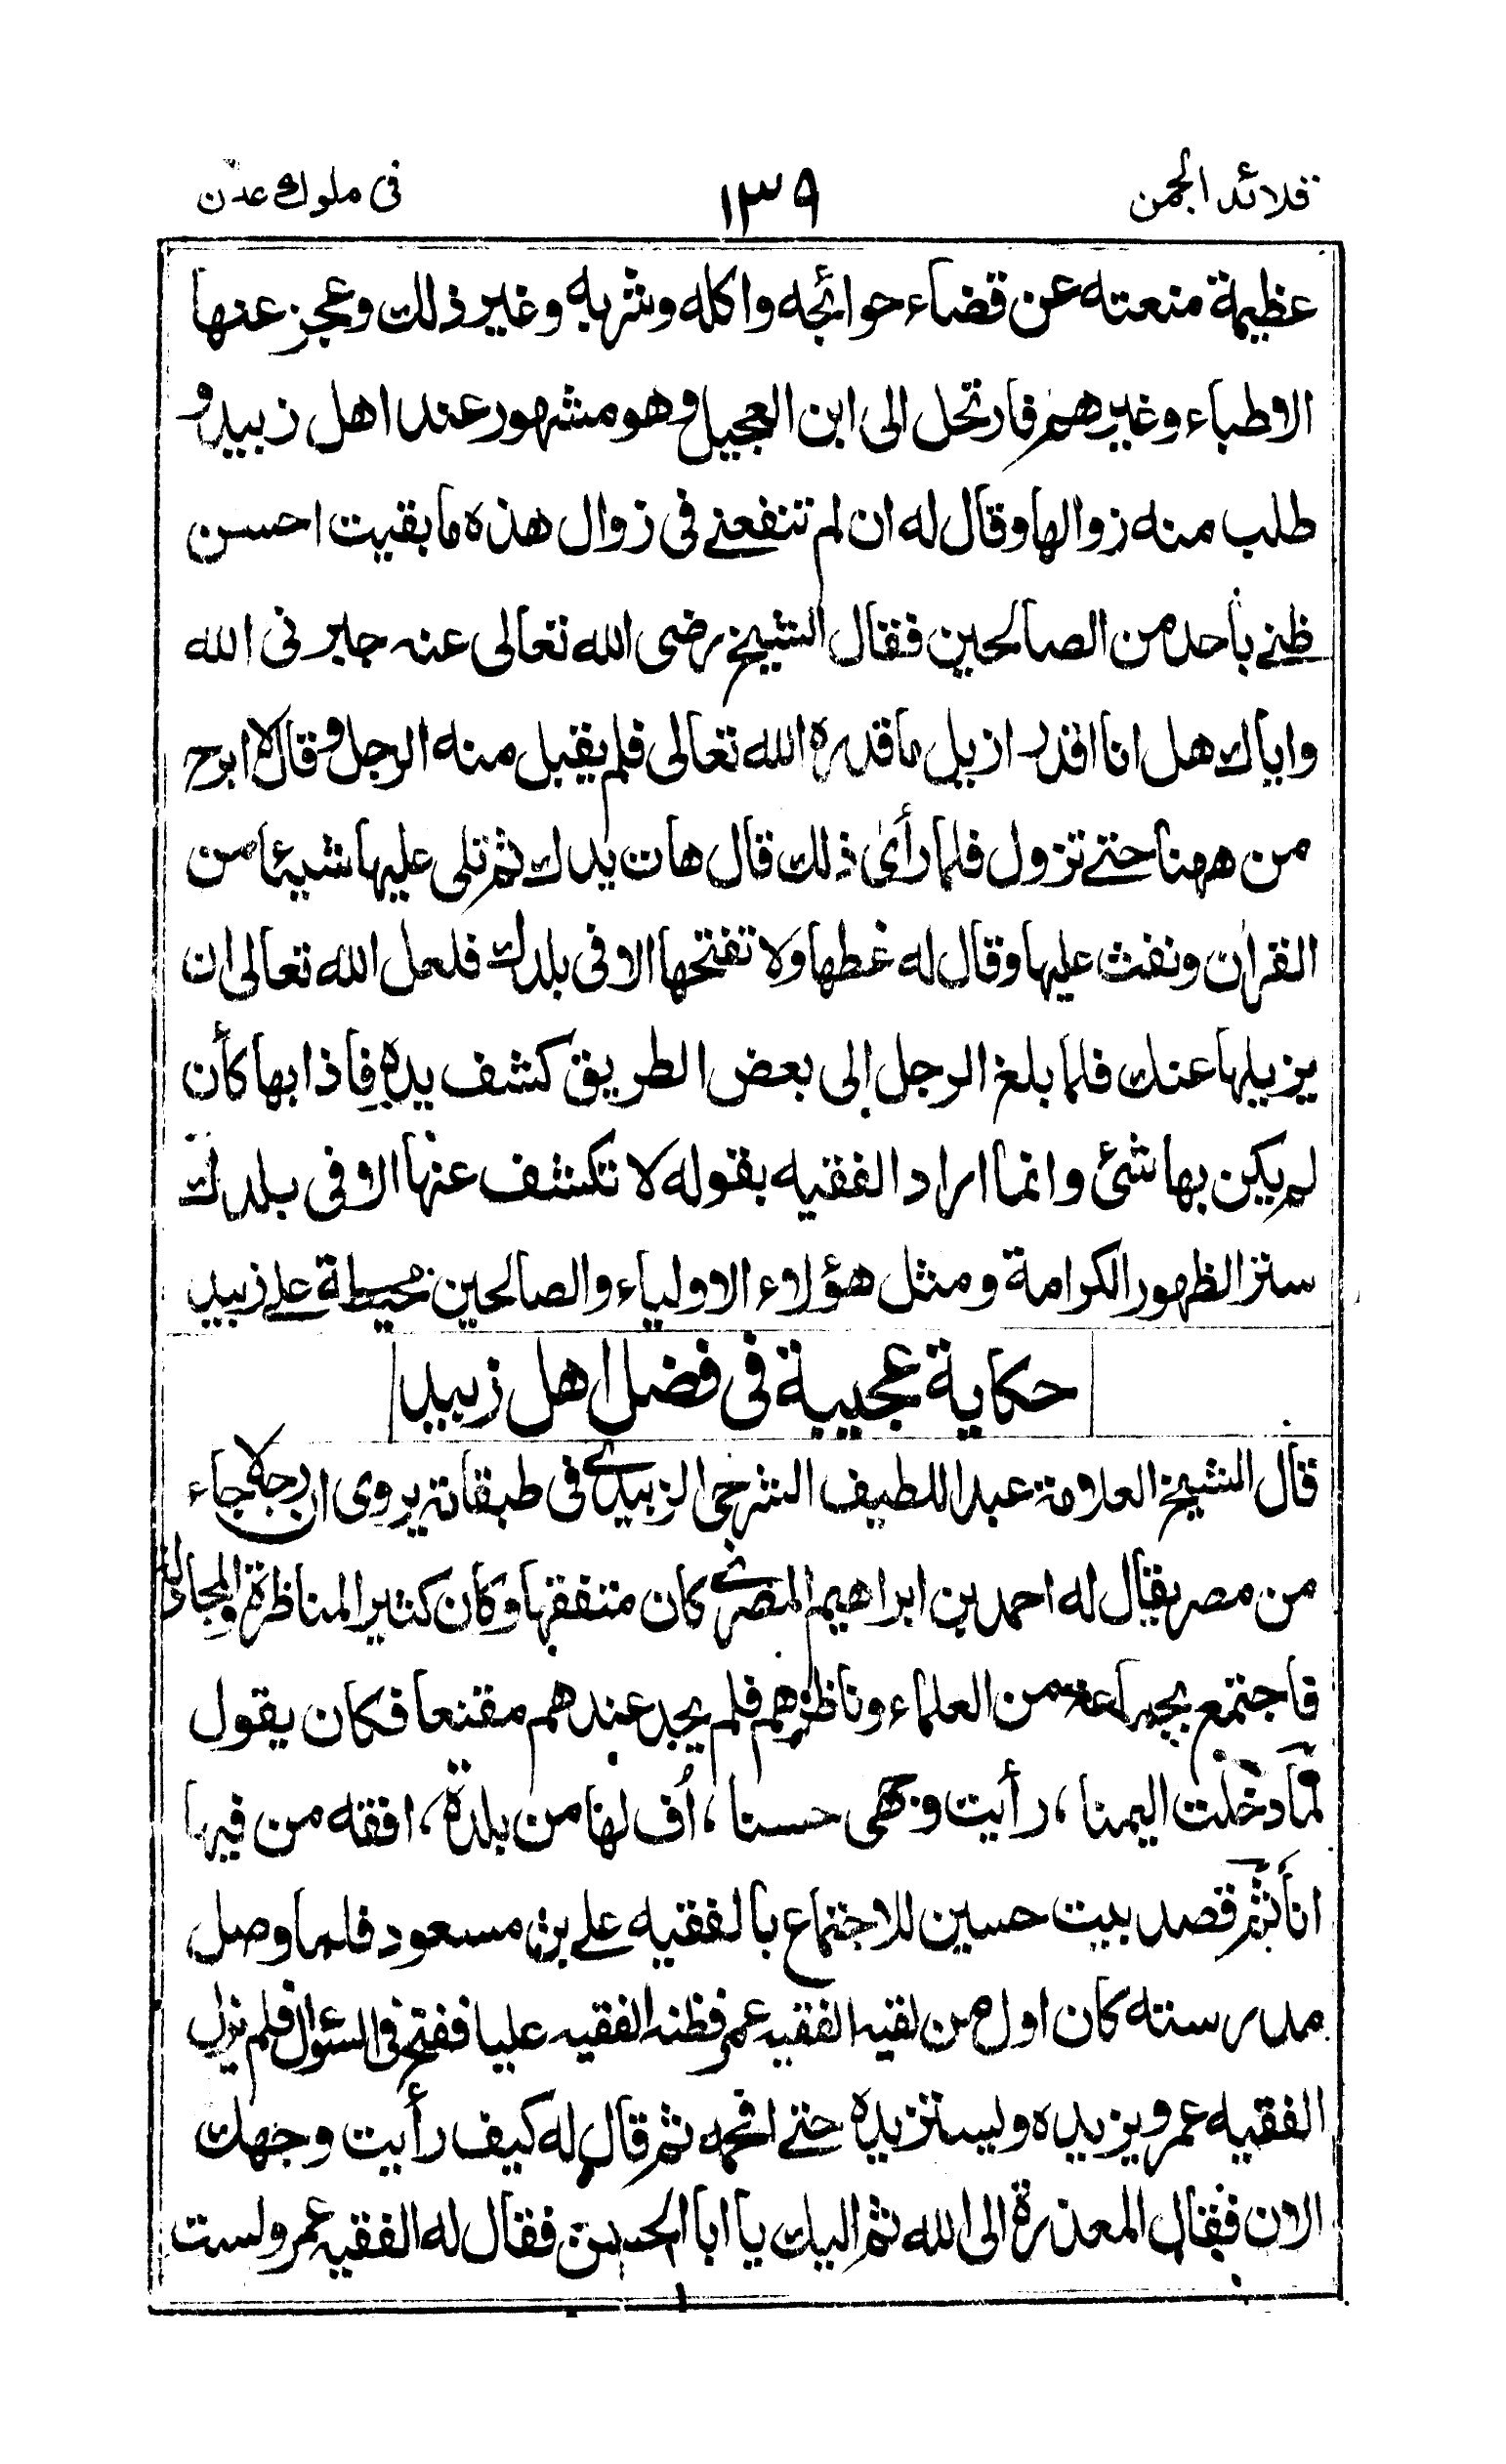 قلائد الجمن
١٣٩
فى ملوك عدن
عظيمة منعته عن قضاء حوائجه واكله وشربه وغير ذلك وعجز عنها
الاطباء وغيرهم فارتحل الى ابن العجيل وهو مشهور عند اهل زبيد و
طلب منه زوالها وقال له ان لم تنفعنے فى زوال هذه ما بقيت احسن
ظنے بأحد من الصالحين فقال الشيخ رضى الله تعالى عنه جابر نى الله
واياك هل انا اقدر ازيل ما قدره الله تعالى فلم يقبل منه الرجل وقال لا ابرح
من ههنا حتے تزول فلما رأى ذلك قال هات يدك ثم تلى عليها شيئا من
القران ونفث عليها وقال له غطها ولا تفتحها الا فى بلدك فلعل الله تعالى ان
يزيلها عنك فلما بلغ الرجل إلى بعض الطريق كشف يده فإذا بها كأن
لم يكن بها شئ وانما اراد الفقيه بقوله لا تكشف عنها الا فى بلدك
سترا لظهور الكرامة ومثل هؤلاء الاولياء والصالحين محيطة علے زبيد
حكاية عجيبة فى فضل اهل زبيد
قال الشيخ العلامة عبد اللطيف الشرجى الزبيدے فى طبقاته يروى ان رجلا جاء
من مصر يقال له احمد بن ابراهيم المضرے كان متفقها وكان كثير المناظرة والمجادلة
فاجتمع بجماعة من العلماء وناظرهم فلم يجد عندهم مقنعا فكان يقول
لما دخلت اليمنا، رأيت وجهى حسنا، أُف لها من بلدة، افقه من فيها
انا ثم قصد بيت حسين للاجتماع بالفقيه علے بن مسعود فلما وصل
مدرسته كان اول من لقيه الفقيه عمر فظنه الفقيه عليا ففتح فى السئوال فلم يزل
الفقيه عمر ويزيده ويستزيده حتے افحمه ثم قال له كيف رأيت وجهك
الان فقال المعذرة الى الله ثم اليك يا ابا الحسن فقال له الفقيه عمر ولست